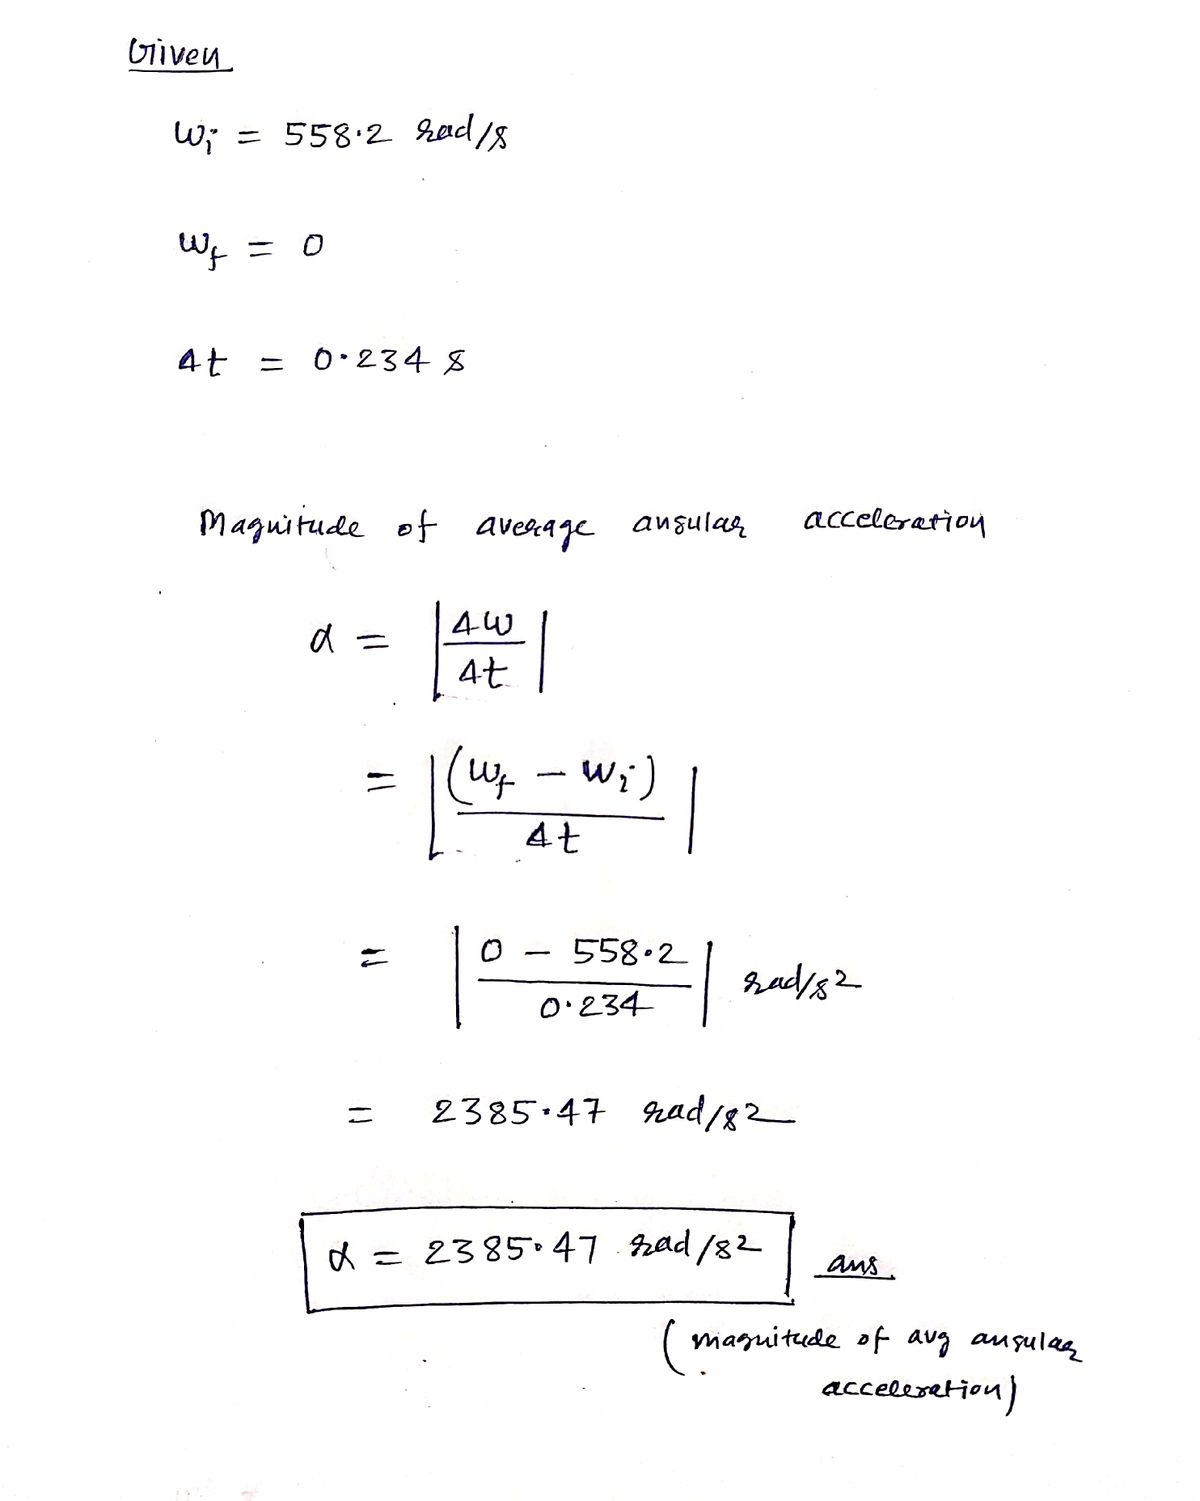 Given
ωi = 558.2 rad/s
ωf = 0
Δt = 0.234 s
Magnitude of average angular acceleration
α = |Δω/Δt|
= |(ωf - ωi)/Δt|
= |0 - 558.2/0.234| rad/s2
= 2385.47 rad/s2
α = 2385.47 rad/s2 ans.
(magnitude of avg angular
acceleration)